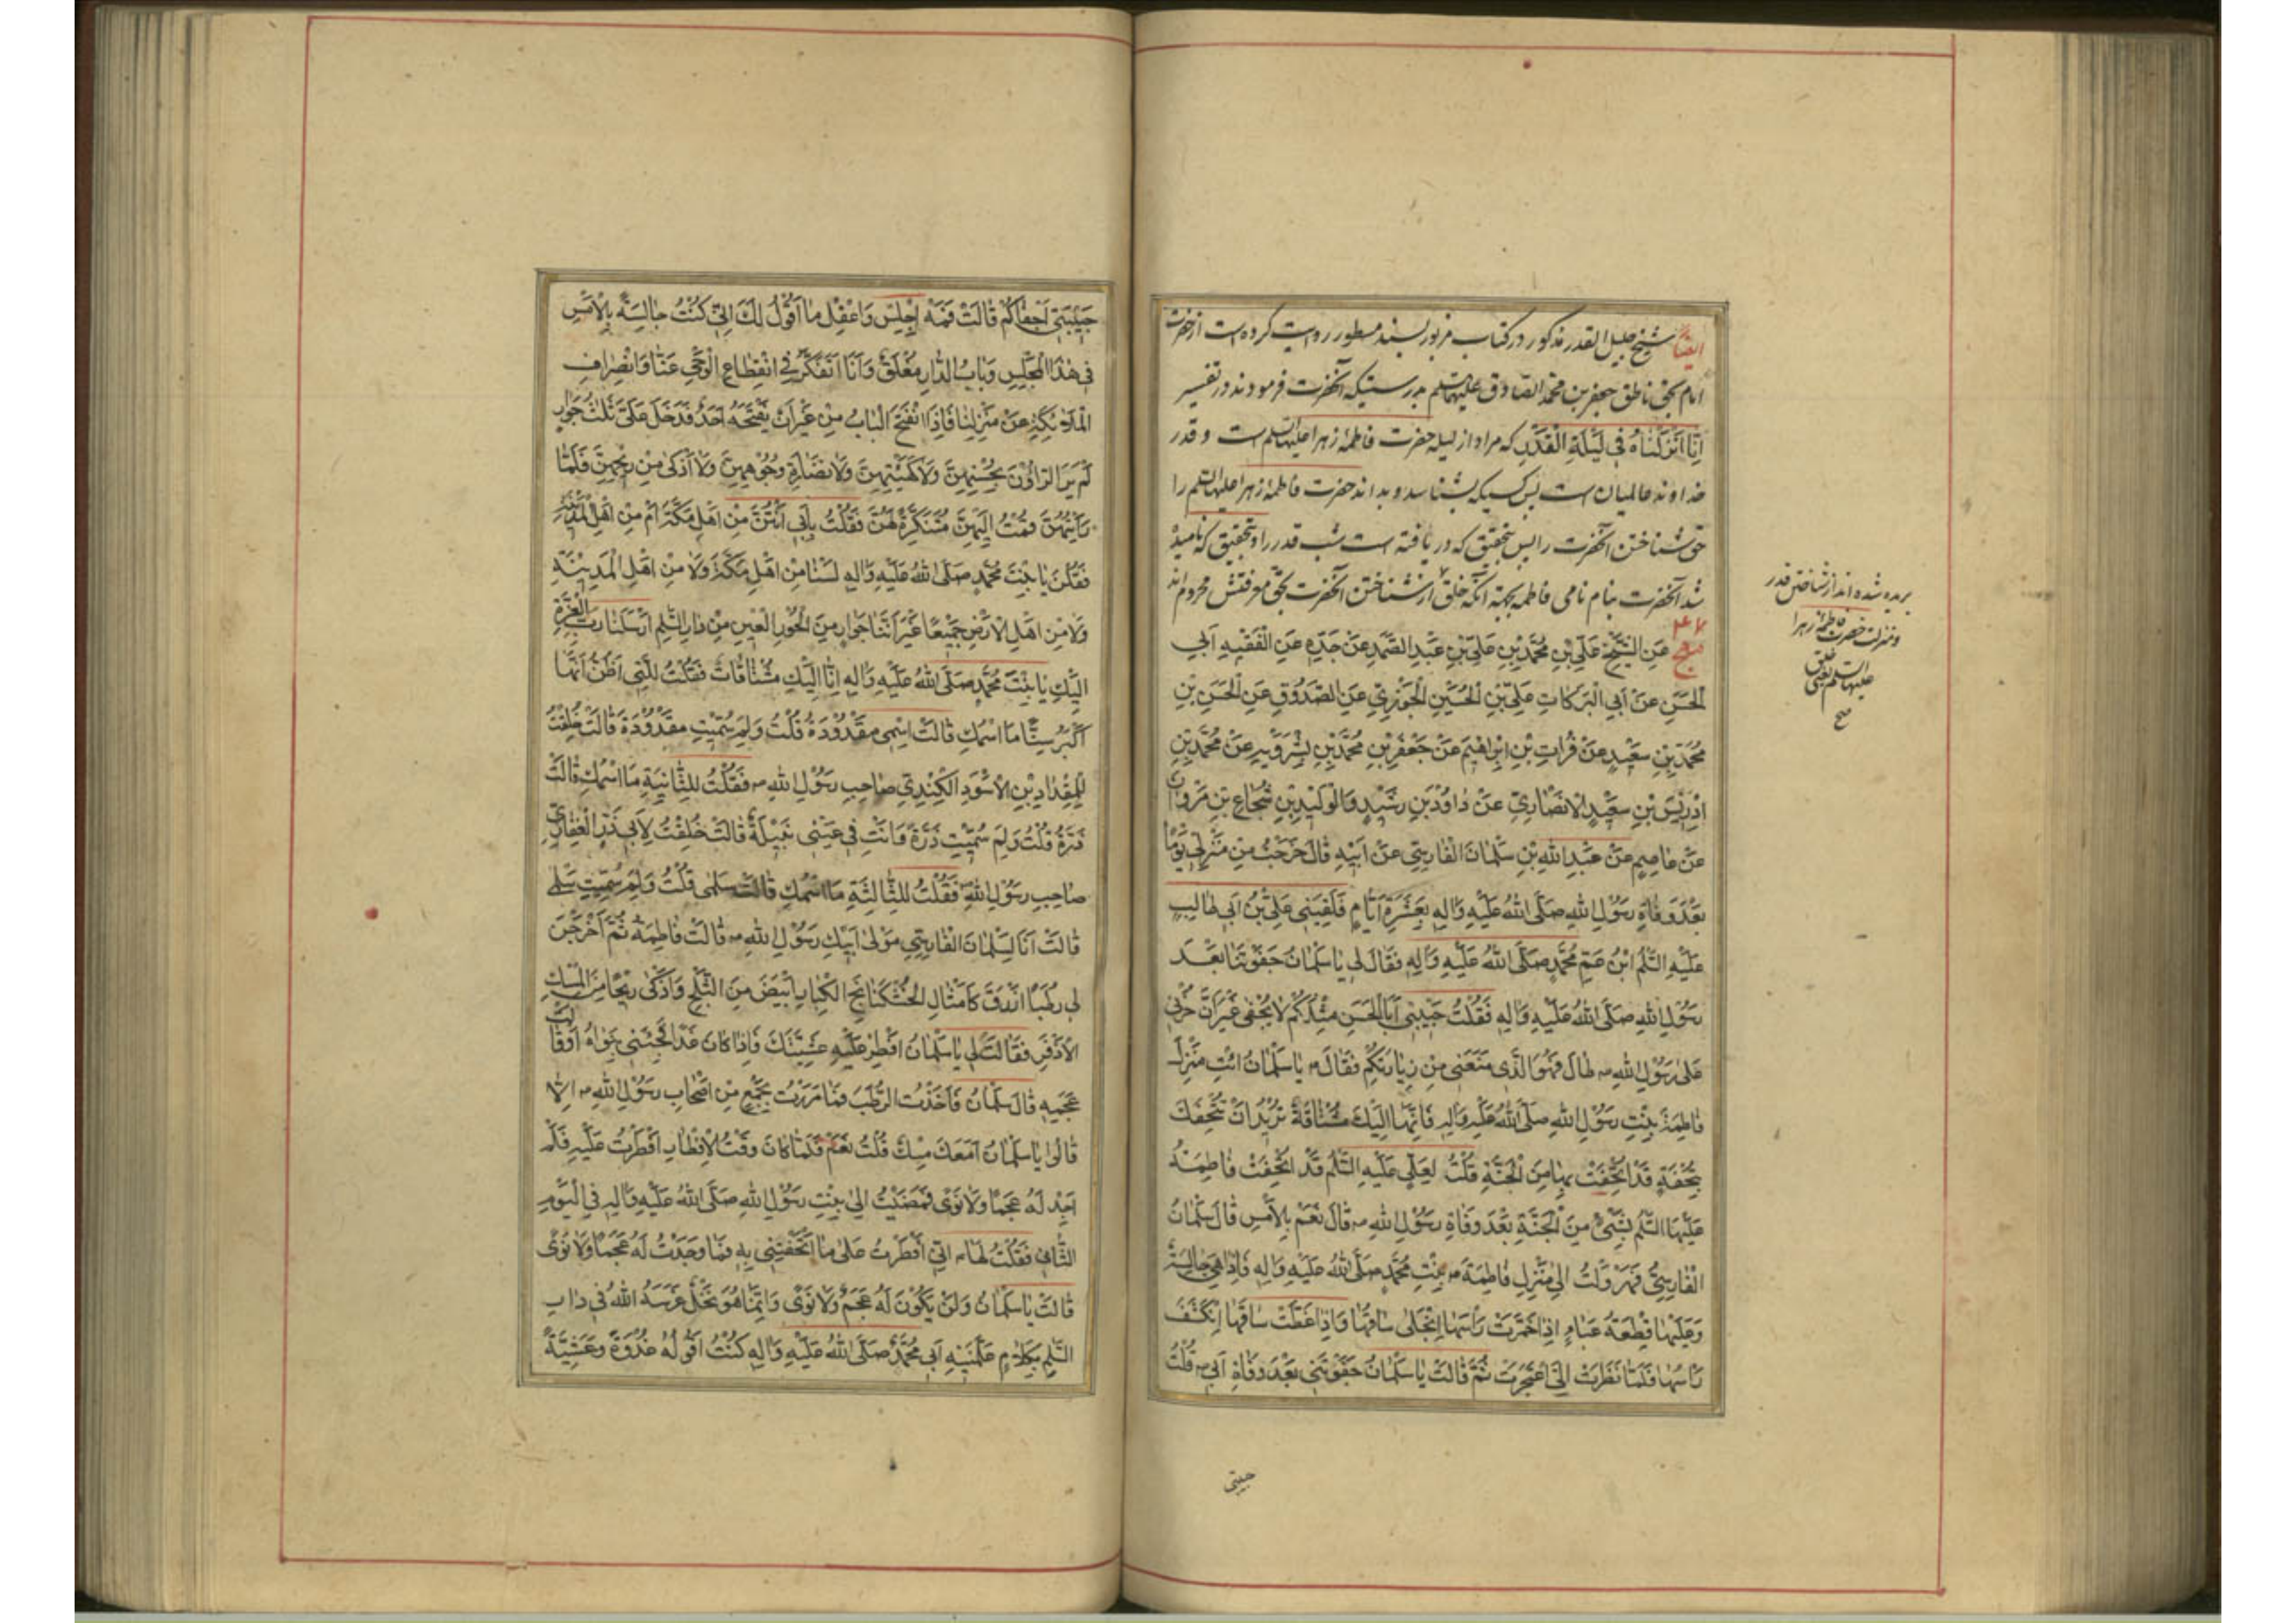 ایضاً شیخ جلیل القدر مذکور در کتاب مزبور بسند مسطور روایت کرده است از حضرت
امام بحق ناطق جعفر بن محمد الصادق علیهما السلم بدرستیکه آنحضرت فرمودند در تفسیر
اِنّا اَنْزَلْناهُ فی لَیْلَةِ الْقَدْرِ که مراد از لیله حضرت فاطمهٔ زهرا علیها السلم است و قدر
خداوند عالمیان است پس کسیکه بشناسد و بداند حضرت فاطمهٔ زهرا علیها السلم را
حق شناختن آنحضرت را پس بتحقیق که دریافته است شب قدر را و بتحقیق که نامیده
شد آنحضرت بنام نامی فاطمه بجهة آنکه خلق از شناختن آنحضرت بحق معرفتش محروم اند
بریده شده اند از شناختن قدر
و منزلت حضرت فاطمهٔ زهرا
علیها السلم یعنی خلق
صح
مهج عَنِ الشَّیْخِ عَلِیِّ بْنِ مُحَمَّدِ بْنِ عَلِیِّ بْنِ عَبْدِ الصَّمَدِ عَنْ جَدِّهِ عَنِ الْفَقیهِ اَبی
الْحَسَنِ عَنْ اَبی الْبَرَکاتِ عَلِیِّ بْنِ الْحُسَیْنِ الْجَوْزِیِّ عَنِ الصَّدُوقِ عَنِ الْحَسَنِ بْنِ
مُحَمَّدِ بْنِ سَعیدٍ عَنْ فُراتِ بْنِ اِبْراهیمَ عَنْ جَعْفَرِ بْنِ مُحَمَّدِ بْنِ بِشْرَوَیْهِ عَنْ مُحَمَّدِ بْنِ
اِدْریسَ بْنِ سَعیدٍ الْاَنْصارِیِّ عَنْ داوُدَ بْنِ رَشیدٍ وَالْوَلیدِ بْنِ شُجاعِ بْنِ مَرْوانَ
عَنْ عاصِمٍ عَنْ عَبْدِ اللهِ بْنِ سَلْمانَ الْفارِسِیِّ عَنْ اَبیهِ قالَ خَرَجْتُ مِنْ مَنْزِلی یَوْمًا
بَعْدَ وَفاةِ رَسُولِ اللهِ صَلَّی اللهُ عَلَیْهِ وَالِهِ بِعَشَرَةِ اَیّامٍ فَلَقِیَنی عَلِیُّ بْنُ اَبی طالِبٍ
عَلَیْهِ السَّلَمُ ابْنُ عَمِّ مُحَمَّدٍ صَلَّی اللهُ عَلَیْهِ وَالِهِ فَقالَ لی یا سَلْمانُ جَفَوْتَنا بَعْدَ
رَسُولِ اللهِ صَلَّی اللهُ عَلَیْهِ وَالِهِ فَقُلْتُ حَبیبی اَبَا الْحَسَنِ مِثْلُکُمْ لا یُجْفی غَیْرَ اَنَّ حُزْنی
عَلی رَسُولِ اللهِ ص طالَ فَهُوَ الَّذی مَنَعَنی مِنْ زِیارَتِکُمْ فَقالَ ع یا سَلْمانُ ائْتِ مَنْزِلَ
فاطِمَةَ بِنْتِ رَسُولِ اللهِ صَلَّی اللهُ عَلَیْهِ وَالِهِ فَاِنَّها اِلَیْکَ مُشْتاقَةٌ تُریدُ اَنْ تُتْحِفَکَ
بِتُحْفَةٍ قَدْ اُتْحِفَتْ بِها مِنَ الْجَنَّةِ قُلْتُ لِعَلِیٍّ عَلَیْهِ السَّلَمُ قَدْ اُتْحِفَتْ فاطِمَةُ
عَلَیْهَا السَّلَمُ بِشَیْءٍ مِنَ الْجَنَّةِ بَعْدَ وَفاةِ رَسُولِ اللهِ ص قالَ نَعَمْ بِالْاَمْسِ قالَ سَلْمانُ
الْفارِسِیُّ فَهَرْوَلْتُ اِلی مَنْزِلِ فاطِمَةَ ع بِنْتِ مُحَمَّدٍ صَلَّی اللهُ عَلَیْهِ وَالِهِ فَاِذا هِیَ جالِسَةٌ
وَعَلَیْها قِطْعَةُ عَباءٍ اِذا خَمَّرَتْ رَاْسَهَا انْجَلی ساقُها وَاِذا غَطَّتْ ساقَهَا انْکَشَفَ
رَاْسُها فَلَمّا نَظَرَتْ اِلَیَّ اعْتَجَرَتْ ثُمَّ قالَتْ یا سَلْمانُ جَفَوْتَنی بَعْدَ وَفاةِ اَبی ص قُلْتُ
حبیبتی
حَبیبَتی اَجْفاکُمْ قالَتْ فَمَهْ اِجْلِسْ وَاعْقِلْ ما اَقُولُ لَکَ اِنّی کُنْتُ جالِسَةً بِالْاَمْسِ
فی هٰذَا الْمَجْلِسِ وَبابُ الدّارِ مُغْلَقٌ وَاَنَا اَتَفَکَّرُ فی انْقِطاعِ الْوَحْیِ عَنّا وَانْصِرافِ
الْمَلاٰئِکَةِ عَنْ مَنْزِلِنا فَاِذَا انْفَتَحَ الْبابُ مِنْ غَیْرِ اَنْ یَفْتَحَهُ اَحَدٌ فَدَخَلَ عَلَیَّ ثَلٰثُ جَوارٍ
لَمْ یَرَ الرّاؤُنَ بِحُسْنِهِنَّ وَلا کَهَیْئَتِهِنَّ وَلا نَضارَةِ وُجُوهِهِنَّ وَلا اَذْکی مِنْ ریحِهِنَّ فَلَمّا
رَاَیْتُهُنَّ قُمْتُ اِلَیْهِنَّ مُتَنَکِّرَةً لَهُنَّ فَقُلْتُ بِاَبی اَنْتُنَّ مِنْ اَهْلِ مَکَّةَ اَمْ مِنْ اَهْلِ الْمَدینَةِ
فَقُلْنَ یا بِنْتَ مُحَمَّدٍ صَلَّی اللهُ عَلَیْهِ وَالِهِ لَسْنا مِنْ اَهْلِ مَکَّةَ وَلا مِنْ اَهْلِ الْمَدینَةِ
وَلا مِنْ اَهْلِ الْاَرْضِ جَمیعًا غَیْرَ اَنَّنا جَوارٍ مِنَ الْحُورِ الْعینِ مِنْ دارِ السَّلٰمِ اَرْسَلَنا رَبُّ الْعِزَّةِ
اِلَیْکِ یا بِنْتَ مُحَمَّدٍ صَلَّی اللهُ عَلَیْهِ وَالِهِ اِنّا اِلَیْکِ مُشْتاقاتٌ فَقُلْتُ لِلَّتی اَظُنُّ اَنَّها
اَکْبَرُ سِنًّا مَا اسْمُکِ قالَتْ اِسْمی مَقْدُودَةُ قُلْتُ وَلِمَ سُمّیتِ مَقْدُودَةَ قالَتْ خُلِقْتُ
لِلْمِقْدادِ بْنِ الْاَسْوَدِ الْکِنْدِیِّ صاحِبِ رَسُولِ اللهِ ص فَقُلْتُ لِلثّانِیَةِ مَا اسْمُکِ قالَتْ
ذَرَّةُ قُلْتُ وَلِمَ سُمّیتِ ذَرَّةَ وَاَنْتِ فی عَیْنی نَبیلَةٌ قالَتْ خُلِقْتُ لِاَبی ذَرٍّ الْغِفارِیِّ
صاحِبِ رَسُولِ اللهِ ص فَقُلْتُ لِلثّالِثَةِ مَا اسْمُکِ قالَتْ سَلْمی قُلْتُ وَلِمَ سُمّیتِ سَلْمی
قالَتْ اَنَا لِسَلْمانَ الْفارِسِیِّ مَوْلی اَبیکِ رَسُولِ اللهِ ص قالَتْ فاطِمَةُ ثُمَّ اَخْرَجْنَ
لی رُطَبًا اَزْرَقَ کَاَمْثالِ الْخُشْکَنانَجِ الْکِبارِ اَبْیَضَ مِنَ الثَّلْجِ وَاَذْکی ریحًا مِنَ الْمِسْکِ
الْاَذْفَرِ فَقالَتْ لی یا سَلْمانُ اَفْطِرْ عَلَیْهِ عَشِیَّتَکَ فَاِذا کانَ غَدًا فَجِئْنی بِنَواهُ اَوْ قالَتْ
عَجَمِهِ قالَ سَلْمانُ فَاَخَذْتُ الرُّطَبَ فَما مَرَرْتُ بِجَمْعٍ مِنْ اَصْحابِ رَسُولِ اللهِ ص اِلّا
قالُوا یا سَلْمانُ اَمَعَکَ مِسْکٌ قُلْتُ نَعَمْ فَلَمّا کانَ وَقْتُ الْاِفْطارِ اَفْطَرْتُ عَلَیْهِ فَلَمْ
اَجِدْ لَهُ عَجَمًا وَلا نَوًی فَمَضَیْتُ اِلی بِنْتِ رَسُولِ اللهِ صَلَّی اللهُ عَلَیْهِ وَالِهِ فِی الْیَوْمِ
الثّانی فَقُلْتُ لَها ع اِنّی اَفْطَرْتُ عَلی ما اَتْحَفْتِنی بِهِ فَما وَجَدْتُ لَهُ عَجَمًا وَلا نَوًی
قالَتْ یا سَلْمانُ وَلَنْ یَکُونَ لَهُ عَجَمٌ وَلا نَوًی وَاِنَّما هُوَ نَخْلٌ غَرَسَهُ اللهُ فی دارِ
السَّلٰمِ بِکَلاٰمٍ عَلَّمَنیهِ اَبی مُحَمَّدٌ صَلَّی اللهُ عَلَیْهِ وَالِهِ کُنْتُ اَقُولُهُ غُدْوَةً وَعَشِیَّةً